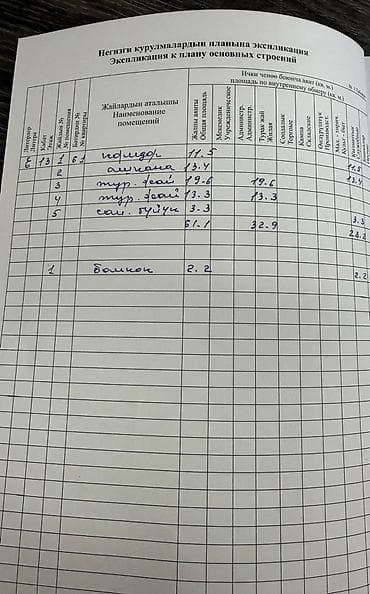 Негизги курулмалардын планына экспликация
Экспликация к плану основных строений
Литерлер Литера
Кабат Этаж
Жайдын № № помещения
Батирдин № № квартиры
Жайлардын аталышы Наименование помещений
Ички ченөө боюнча аянт (кв. м.)
площадь по внутреннему обмеру (кв. м.)
Жалпы аянты Общая площадь
Мекемелик Учрежденческие
Администр. Администр.
Турак жай Жилая
Соодалык Торговые
Кампа Складские
Өндүрүштүк Производст.
Б 13 1 61 коридор 11.5 11.5
2 ашкана 13.4 13.4
3 тур. жай 19.6 19.6
4 тур. жай 13.3 13.3
5 сан. түйүн 3.3 3.3
61.1 32.9 28.2
1 балкон 2.2 2.2